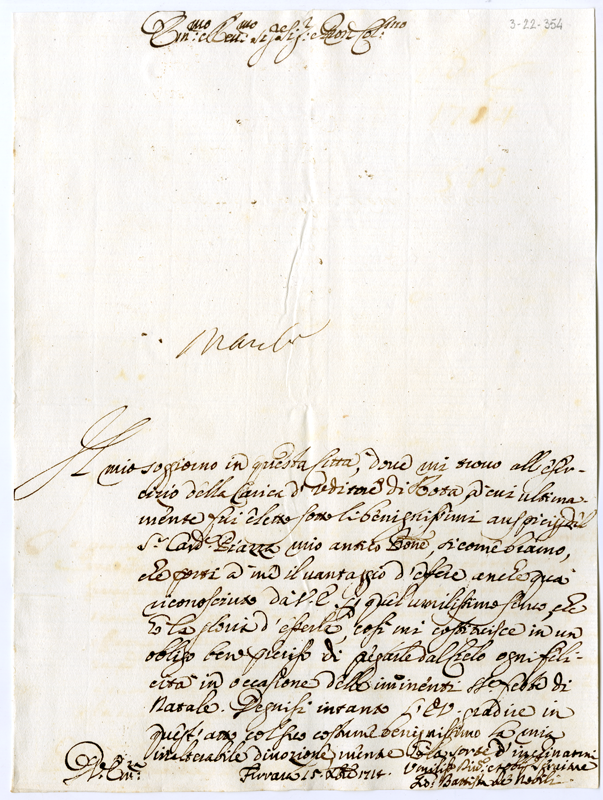 3-22-354
Em.mo e Rev.mo Sig.r Sig.r e Pron Col.mo
Il mio soggiorno in questa Città, dove mi trovo all'eser-
cizio della Carica d'Uditore di Rota a cui ultima-
mente fui eletto sotto li benignissimi auspicij del
S.r Card. Piazza mio antico Prone, sicome bramo,
che porti a me il vantaggio d'essere anche quà
riconosciuto da V. E. p quel umilissimo servo, che
hò la gloria d'esserle, così mi costituisce in un
obligo ben preciso di pregarle dal Cielo ogni feli-
cità in occasione delle imminenti SS.e feste di
Natale. Degnisi intanto l'E.V. gradire in
quest'atto col suo costume benignissimo la mia
inalterabile divozione, mentre hò la sorte d'inchinarmi
D. V. Em.a
Ferrara 15 Xbre 1714.
Umiliss. Div. et Obl. Servitore
Gio: Battista de Nobili